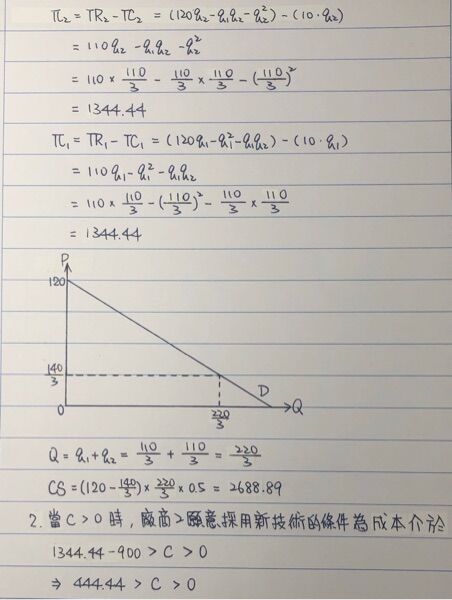 π₂ = TR₂ - TC₂ = (120q₂ - q₁q₂ - q₂²) - (10·q₂)
= 110q₂ - q₁q₂ - q₂²
= 110 × 110/3 - 110/3 × 110/3 - (110/3)²
= 1344.44
π₁ = TR₁ - TC₁ = (120q₁ - q₁² - q₁q₂) - (10·q₁)
= 110q₁ - q₁² - q₁q₂
= 110 × 110/3 - (110/3)² - 110/3 × 110/3
= 1344.44
P
120
140/3
D
0
220/3
Q
Q = q₁ + q₂ = 110/3 + 110/3 = 220/3
CS = (120 - 140/3) × 220/3 × 0.5 = 2688.89
2. 當 C > 0 時, 廠商2願意採用新技術的條件為成本介於
1344.44 - 900 > C > 0
⇒ 444.44 > C > 0